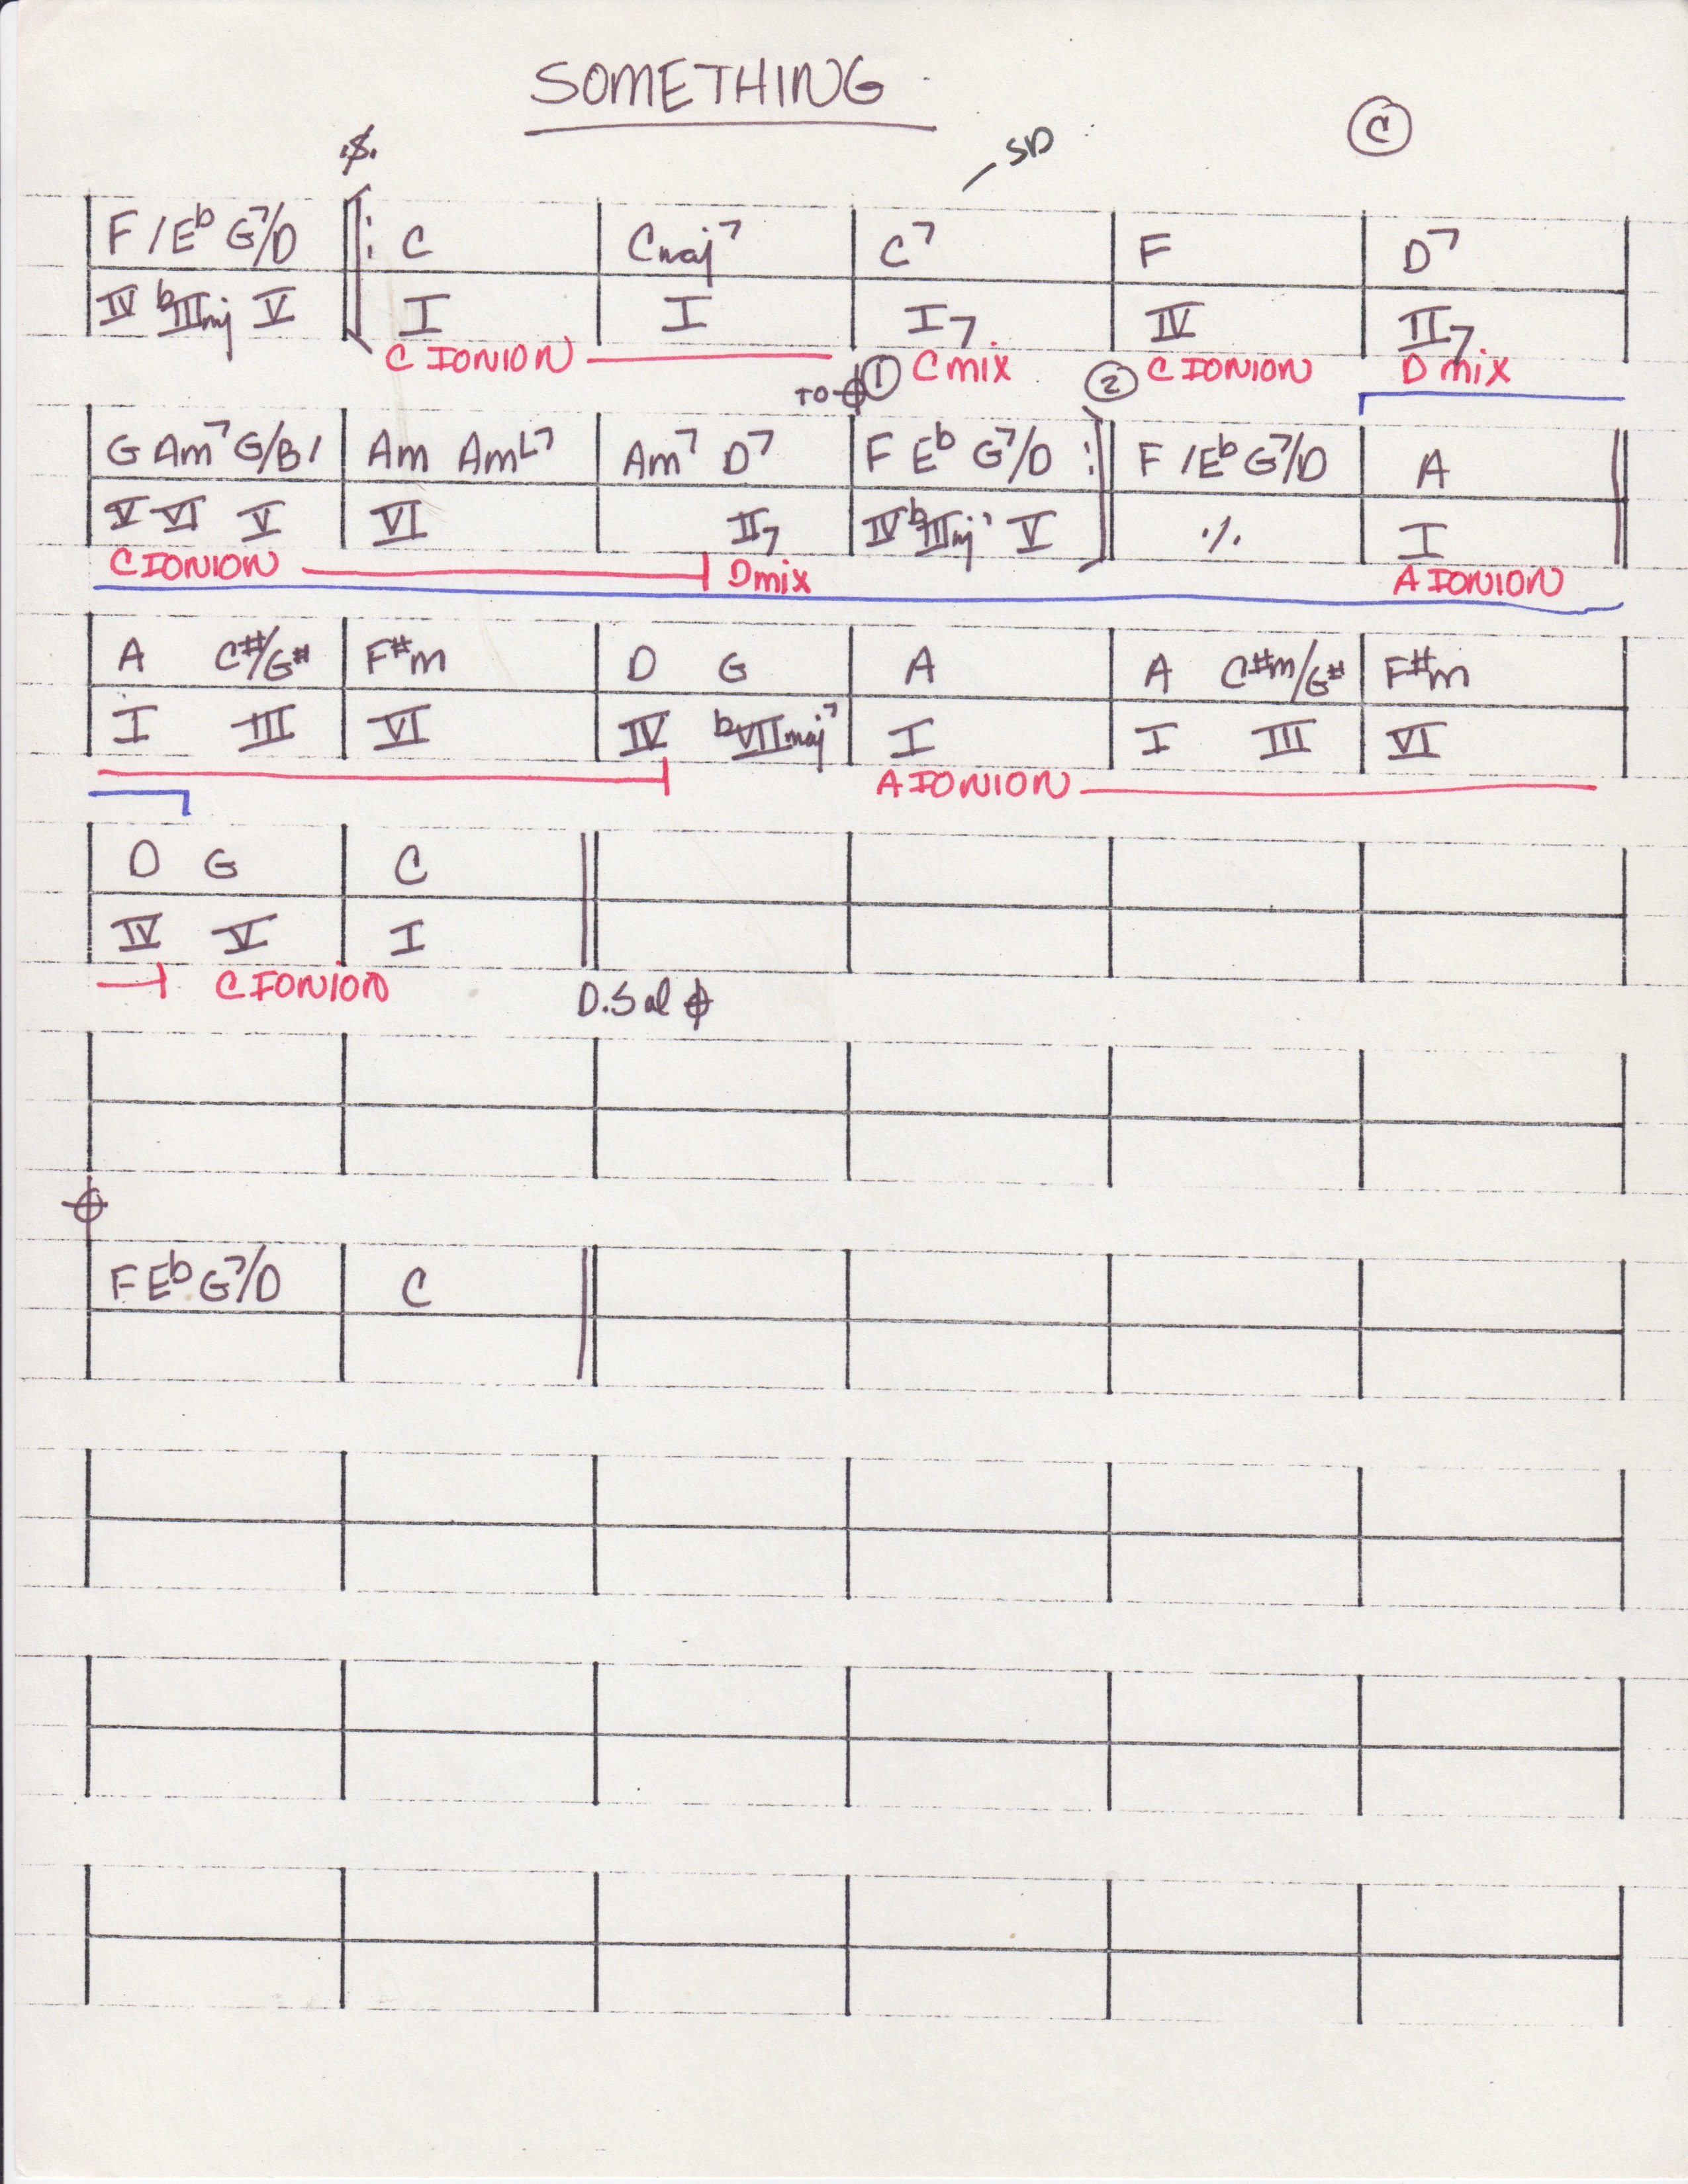 SOMETHING
C
SD
F / E♭ G7/D C Cmaj7 C7 F D7
IV ♭IIImj V I I I7 IV II7
C IONION C mix C IONION D mix
TO 1 2
G Am7 G/B / Am AmL7 Am7 D7 F E♭ G7/D F / E♭ G7/D A
V VI V VI II7 IV ♭IIImj7 V ٪ I
C IONION Dmix A IONION
A C#/G# F#m D G A A C#m/G# F#m
I III VI IV ♭VIImaj7 I I III VI
A IONION
D G C
IV V I
C IONION
D.S al
F E♭ G7/D C